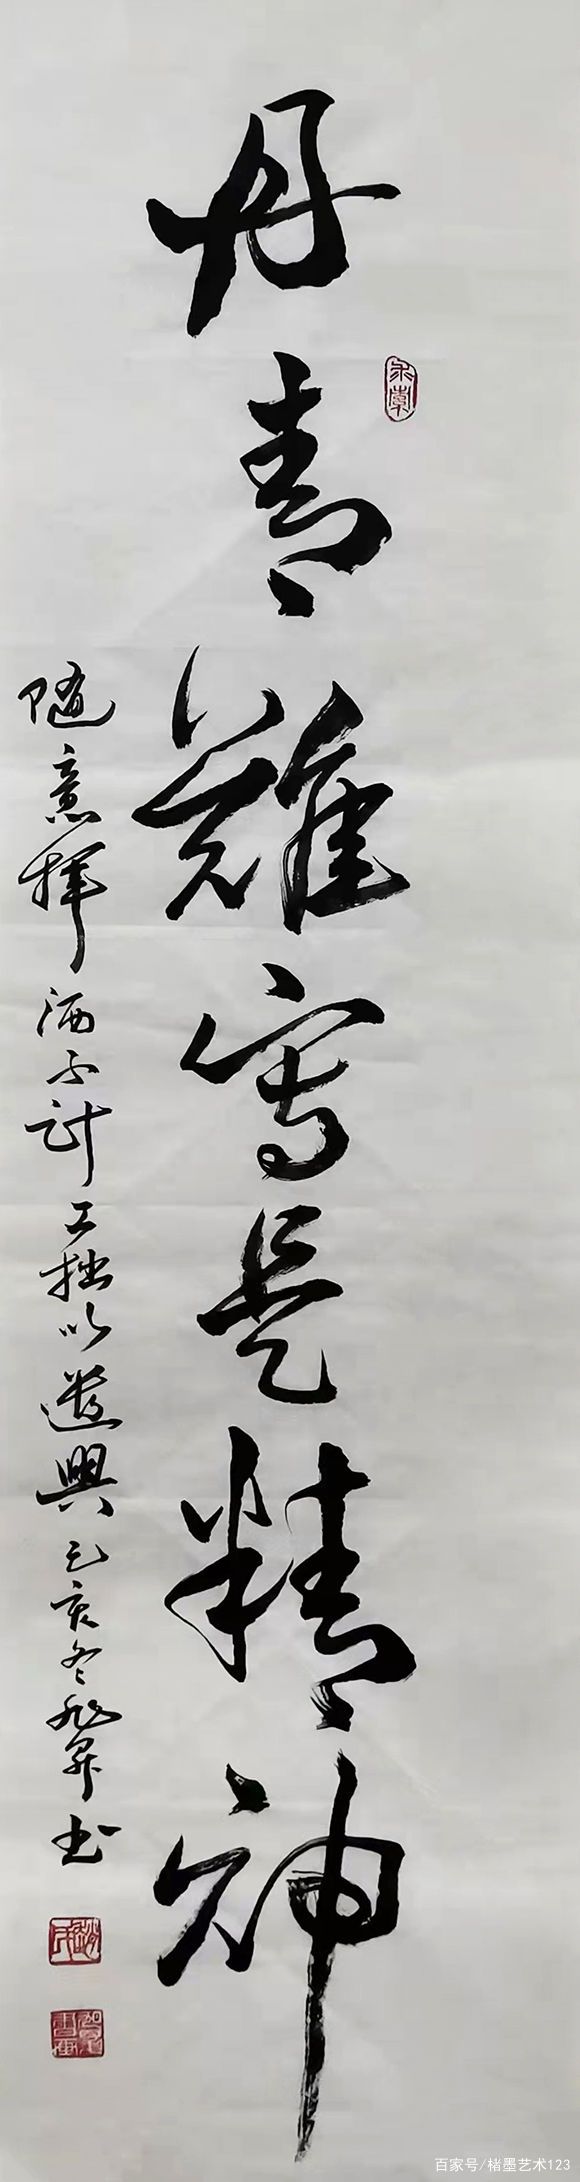 丹青難写是精神
随意挥洒不计工拙以遣興己亥冬旭昇书
百家号/楮墨艺术123